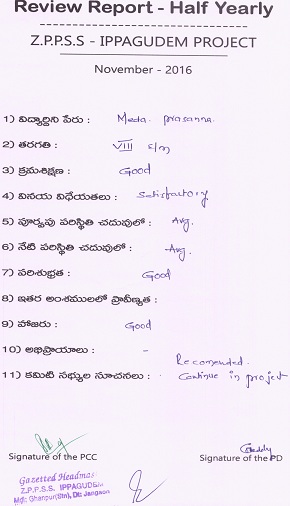 Review Report - Half Yearly
Z.P.P.S.S - IPPAGUDEM PROJECT
November - 2016
1) విద్యార్థిని పేరు : Meda. prasanna.
2) తరగతి : VIII E/m
3) క్రమశిక్షణ : Good
4) వినయ విధేయతలు : Satisfactory.
5) పూర్వపు పరిస్థితి చదువులో : Avg.
6) నేటి పరిస్థితి చదువులో : Avg.
7) పరిశుభ్రత : Good
8) ఇతర అంశములలో ప్రావీణ్యత :
9) హాజరు : Good
10) అభిప్రాయాలు : -
Recomended.
11) కమిటి సభ్యుల సూచనలు : Continue in project
Signature of the PCC
Signature of the PD
Gazetted Headmas
Z.P.P.S.S. IPPAGUDEM
Mdl: Ghanpur(Stn), Dt: Jangaon